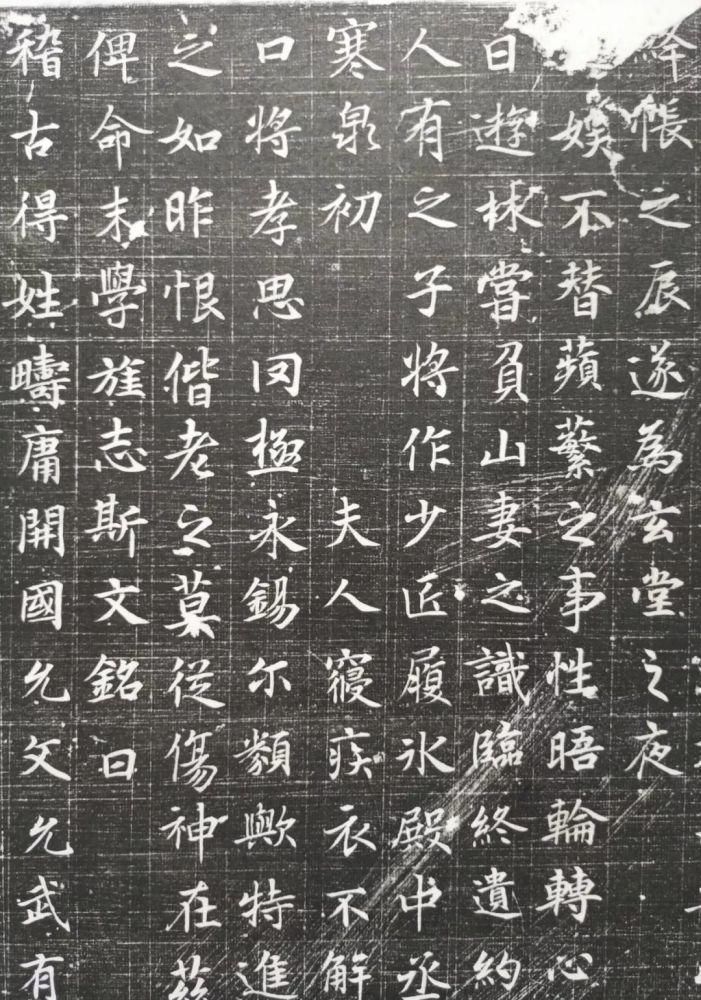 絳帳之辰遂為玄堂之夜
娛不替蘋蘩之事性晤輪轉心
日遊𣏌嘗負山妻之識臨終遺約
人有之子將作少匠履冰殿中丞
寒泉初夫人寢疾衣不解
口將孝思罔極永錫尔類歟特進
之如昨恨偕老之莫從傷神在茲
俾命末學旌志斯文銘曰
稽古得姓疇庸開國允文允武有